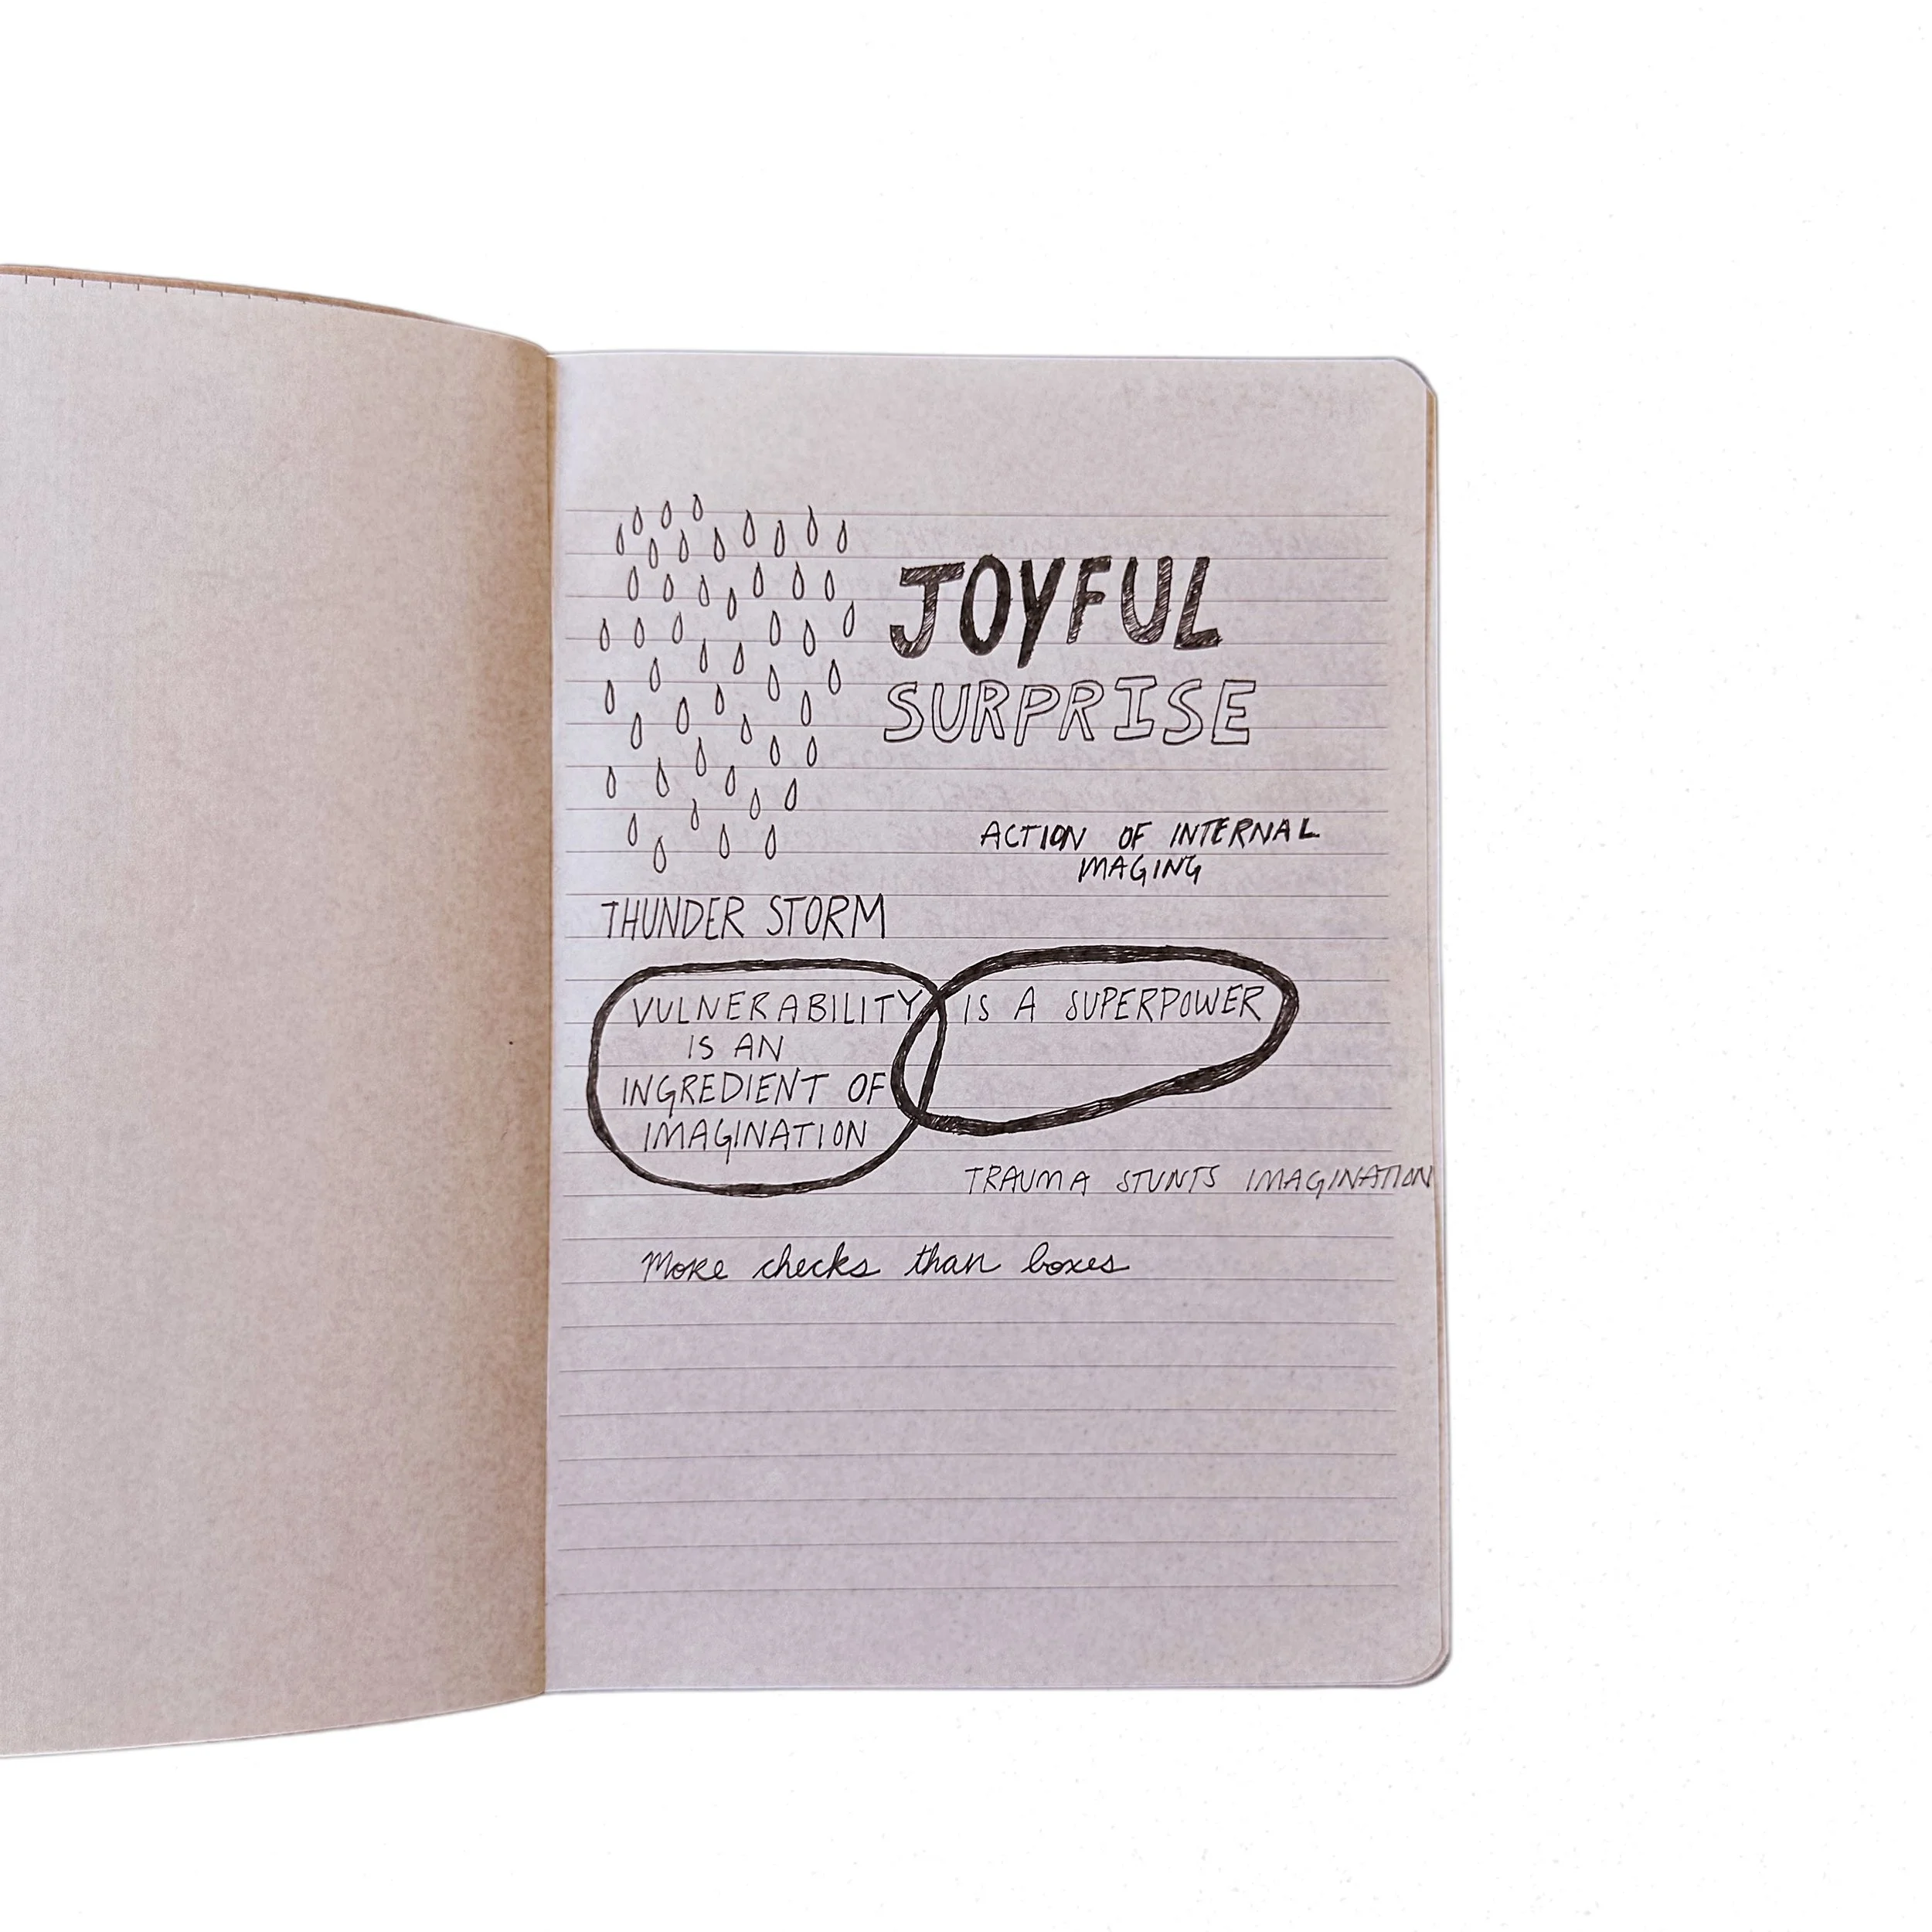 JOYFUL
SURPRISE
ACTION OF INTERNAL
IMAGING
THUNDER STORM
VULNERABILITY IS A SUPERPOWER
IS AN
INGREDIENT OF
IMAGINATION
TRAUMA STUNTS IMAGINATION
More checks than boxes